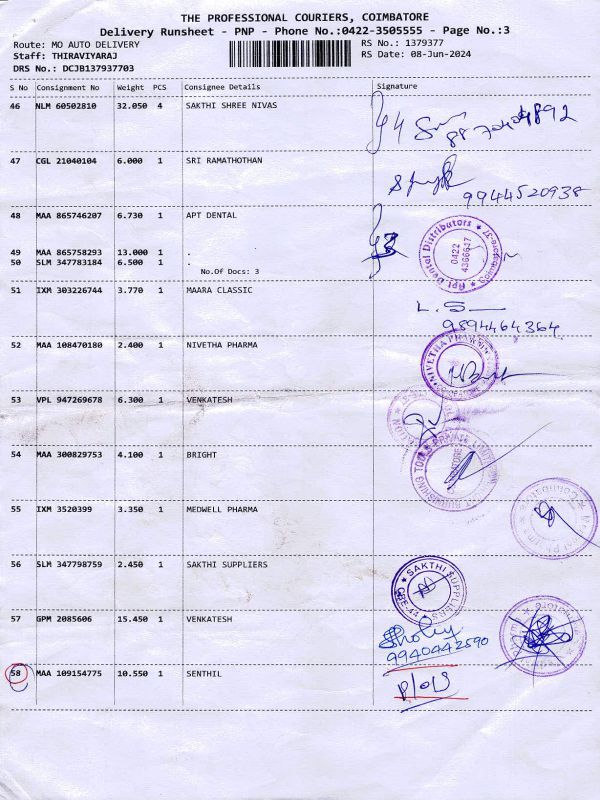 THE PROFESSIONAL COURIERS, COIMBATORE
Delivery Runsheet - PNP - Phone No.:0422-3505555 - Page No.:3
Route: MO AUTO DELIVERY RS No.: 1379377
Staff: THIRAVIYARAJ RS Date: 08-Jun-2024
DRS No.: DCJB137937703
S No Consignment No Weight PCS Consignee Details Signature
46 NLM 60502810 32.050 4 SAKTHI SHREE NIVAS
47 CGL 21040104 6.000 1 SRI RAMATHOTHAN
9944520938
48 MAA 865746207 6.730 1 APT DENTAL
Apt Dental Distributors
0422
4366647
49 MAA 865758293 13.000 1 .
50 SLM 347783184 6.500 1 .
No.Of Docs: 3
51 IXM 303226744 3.770 1 MAARA CLASSIC
9894464364
52 MAA 108470180 2.400 1 NIVETHA PHARMA
NIVETHA PHARMA
53 VPL 947269678 6.300 1 VENKATESH
54 MAA 300829753 4.100 1 BRIGHT
55 IXM 3520399 3.350 1 MEDWELL PHARMA
56 SLM 347798759 2.450 1 SAKTHI SUPPLIERS
SAKTHI SUPPLIERS
CBE-44
57 GPM 2085606 15.450 1 VENKATESH
9940442590
58 MAA 109154775 10.550 1 SENTHIL